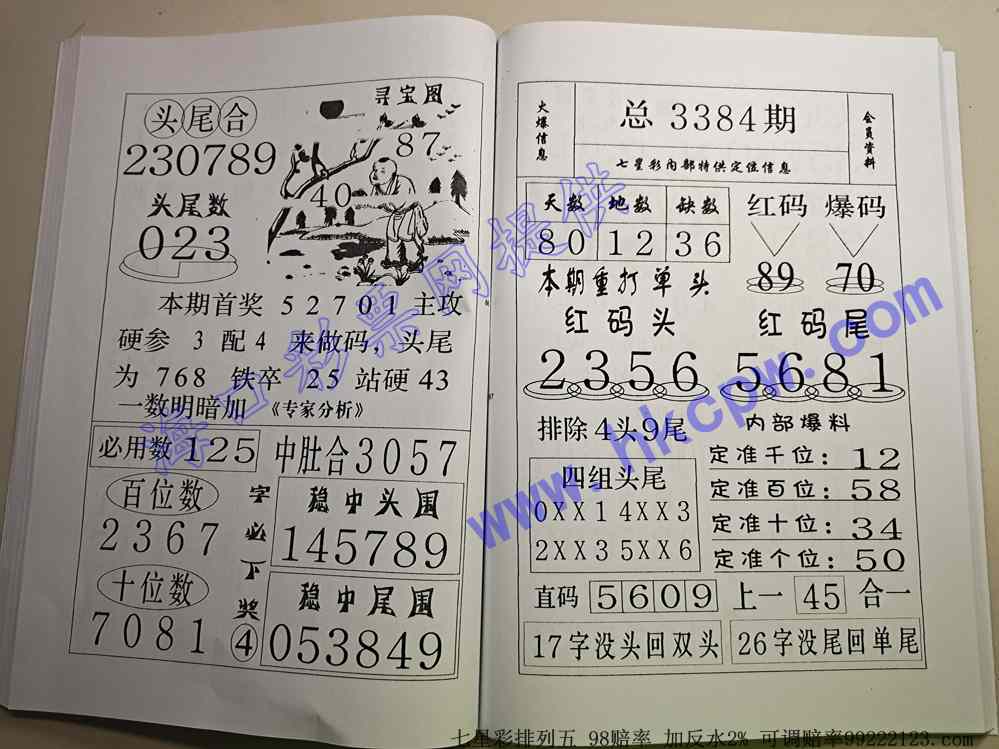 头尾合
230789
寻宝图
87
40
头尾数
023
本期首奖 52701 主攻
硬参 3 配 4 来做码，头尾
为 768 铁卒 25 站硬 43
一数明暗加 《专家分析》
必用数 125
中肚合3057
百位数
2367
十位数
7081
字必下奖④
稳中头围
145789
稳中尾围
053849
火爆信息
总 3384期
七星彩内部特供定位信息
会员资料
天数 地数 缺数
80 12 36
红码 爆码
89 70
本期重打单头
红码头
2356
红码尾
5681
排除4头9尾
四组头尾
0XX1 4XX3
2XX3 5XX6
内部爆料
定准千位：12
定准百位：58
定准十位：34
定准个位：50
直码 5609 上一 45 合一
17字没头回双头
26字没尾回单尾
海口彩票网提供
www.hkcpw.com
七星彩排列五 98赔率 加反水2% 可调赔率99222123.com